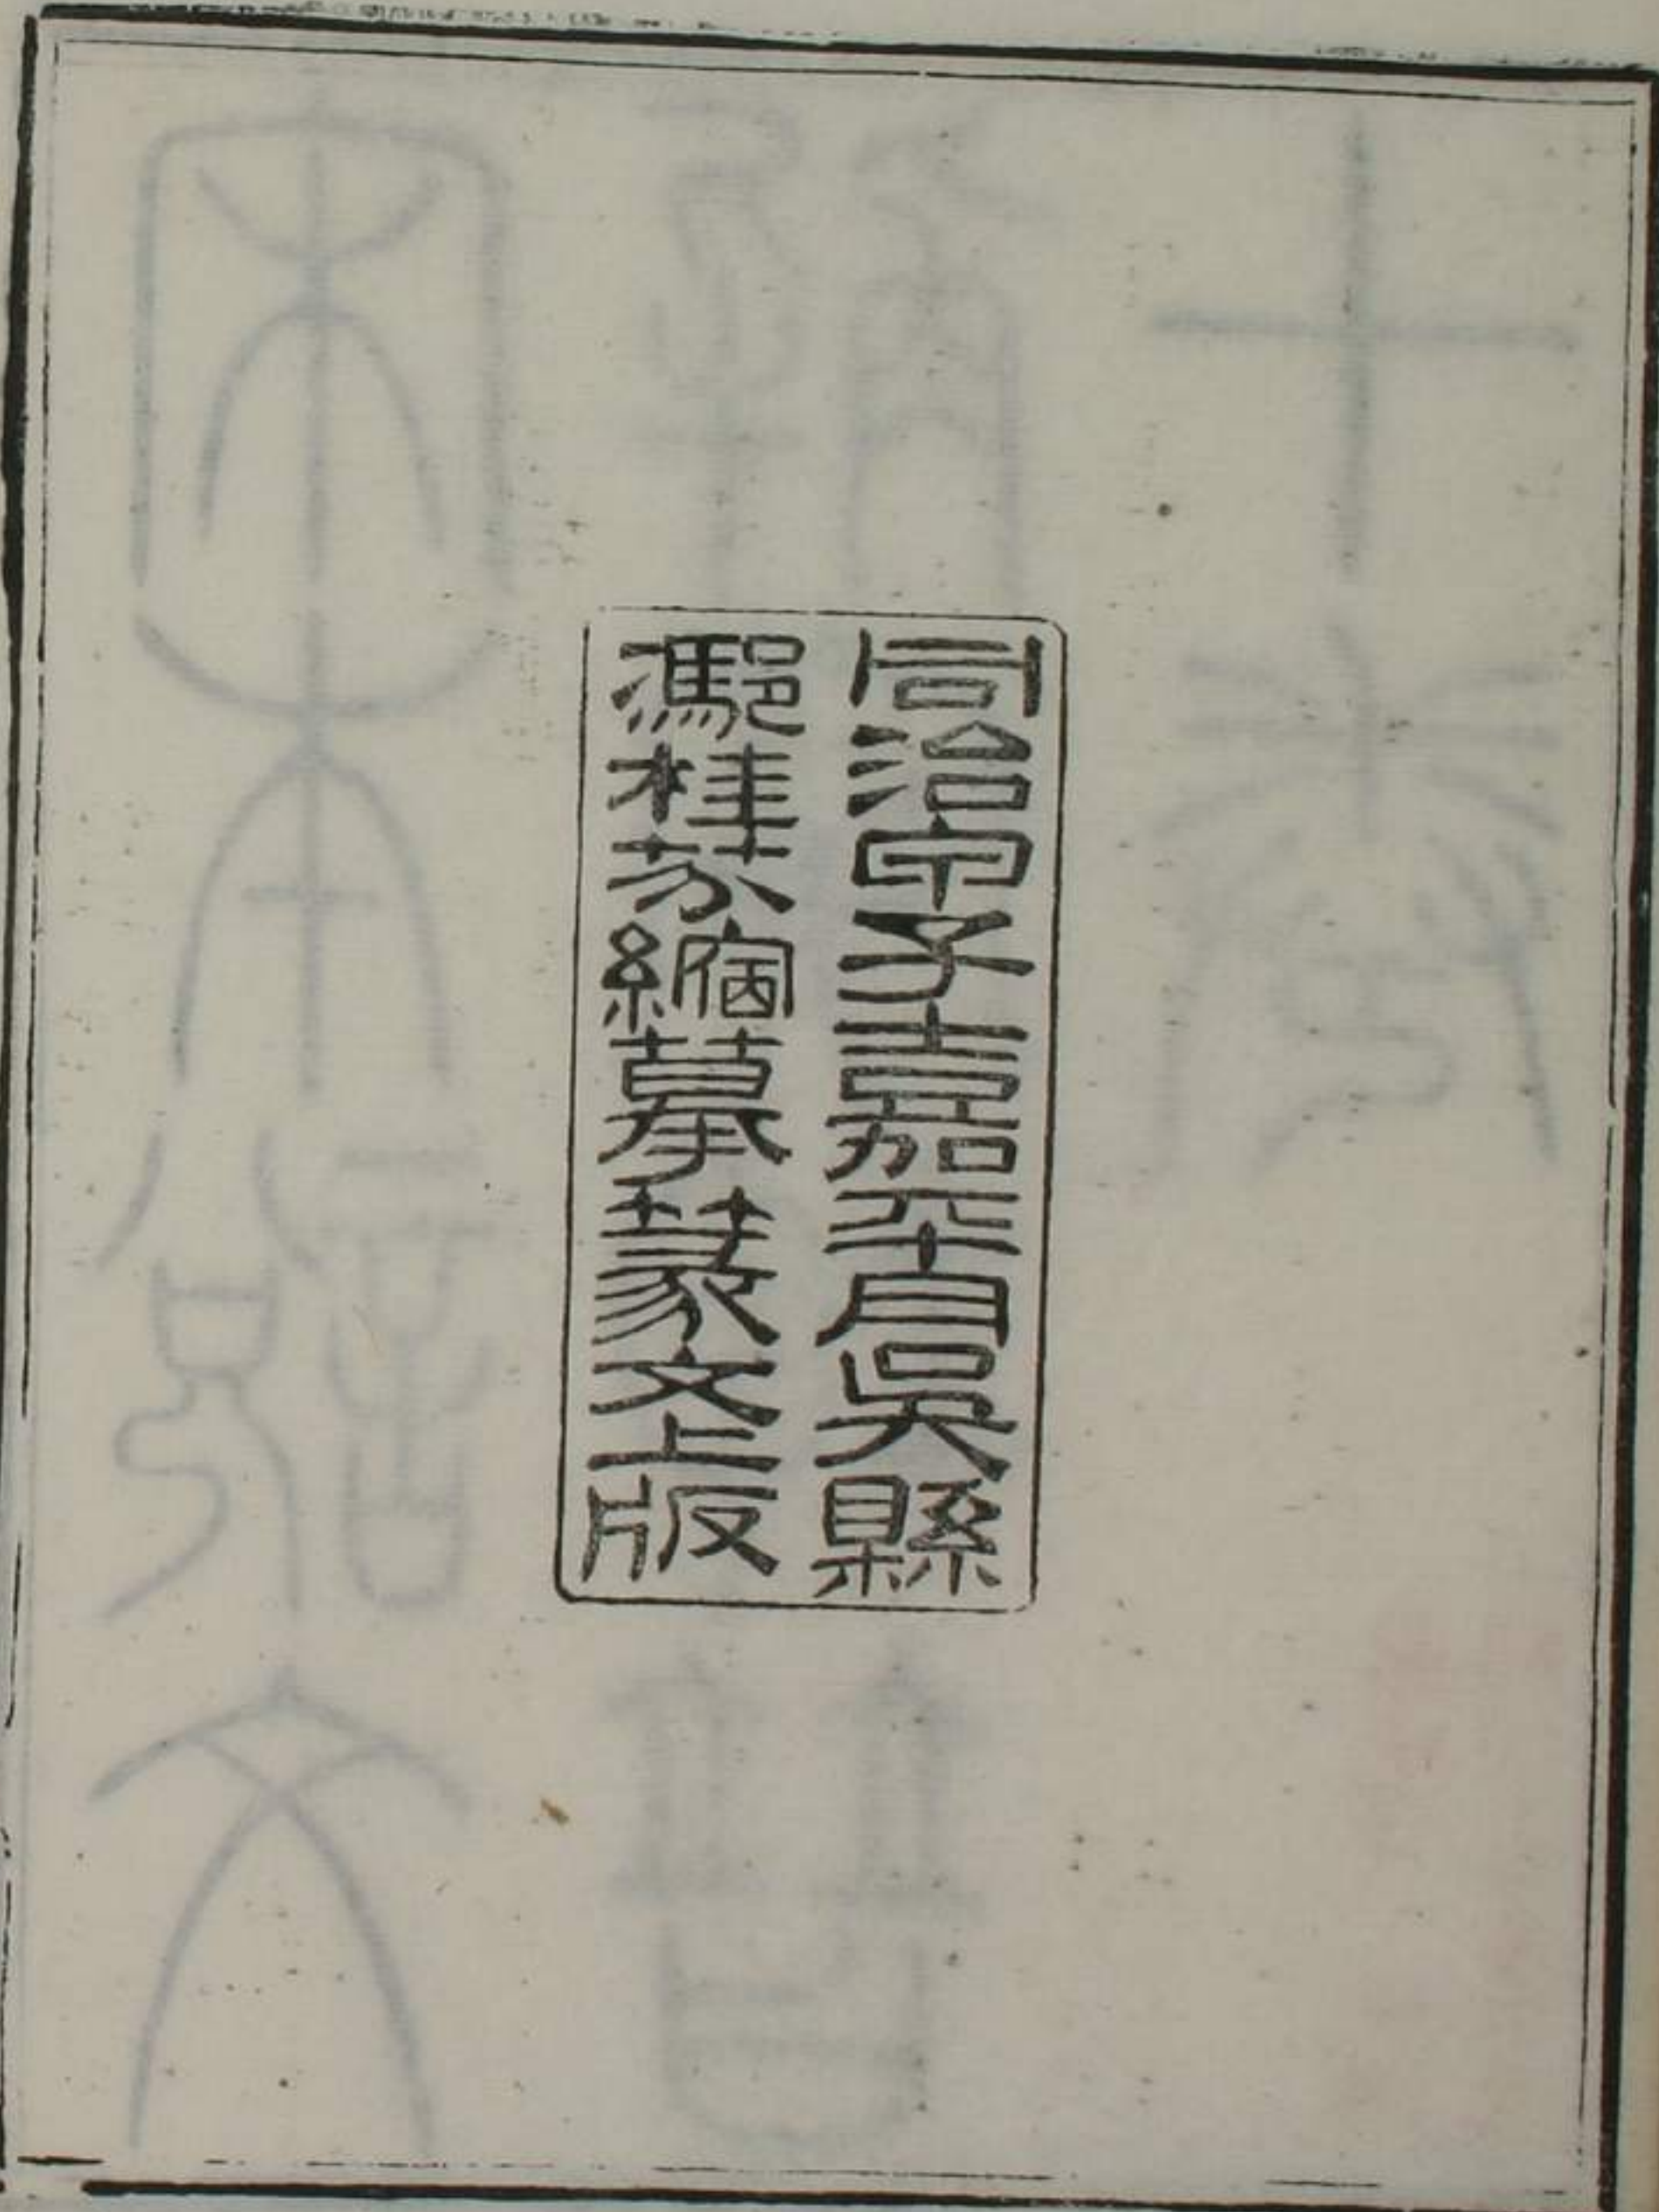 同治甲子嘉平月吳縣
馮桂芬縮摹篆文上版